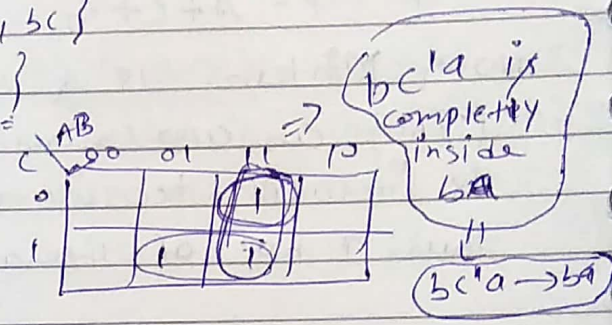 , bc}
}
=
AB
C 00 01 11 10
0 1
1 1 1
=>
bc'a is
completly
inside
ba
bc'a → ba